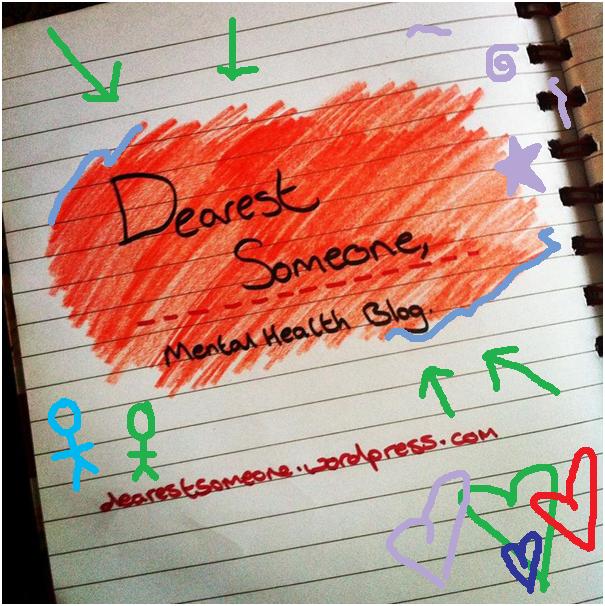 Dearest
Someone,
Mental Health Blog.
dearestsomeone.wordpress.com